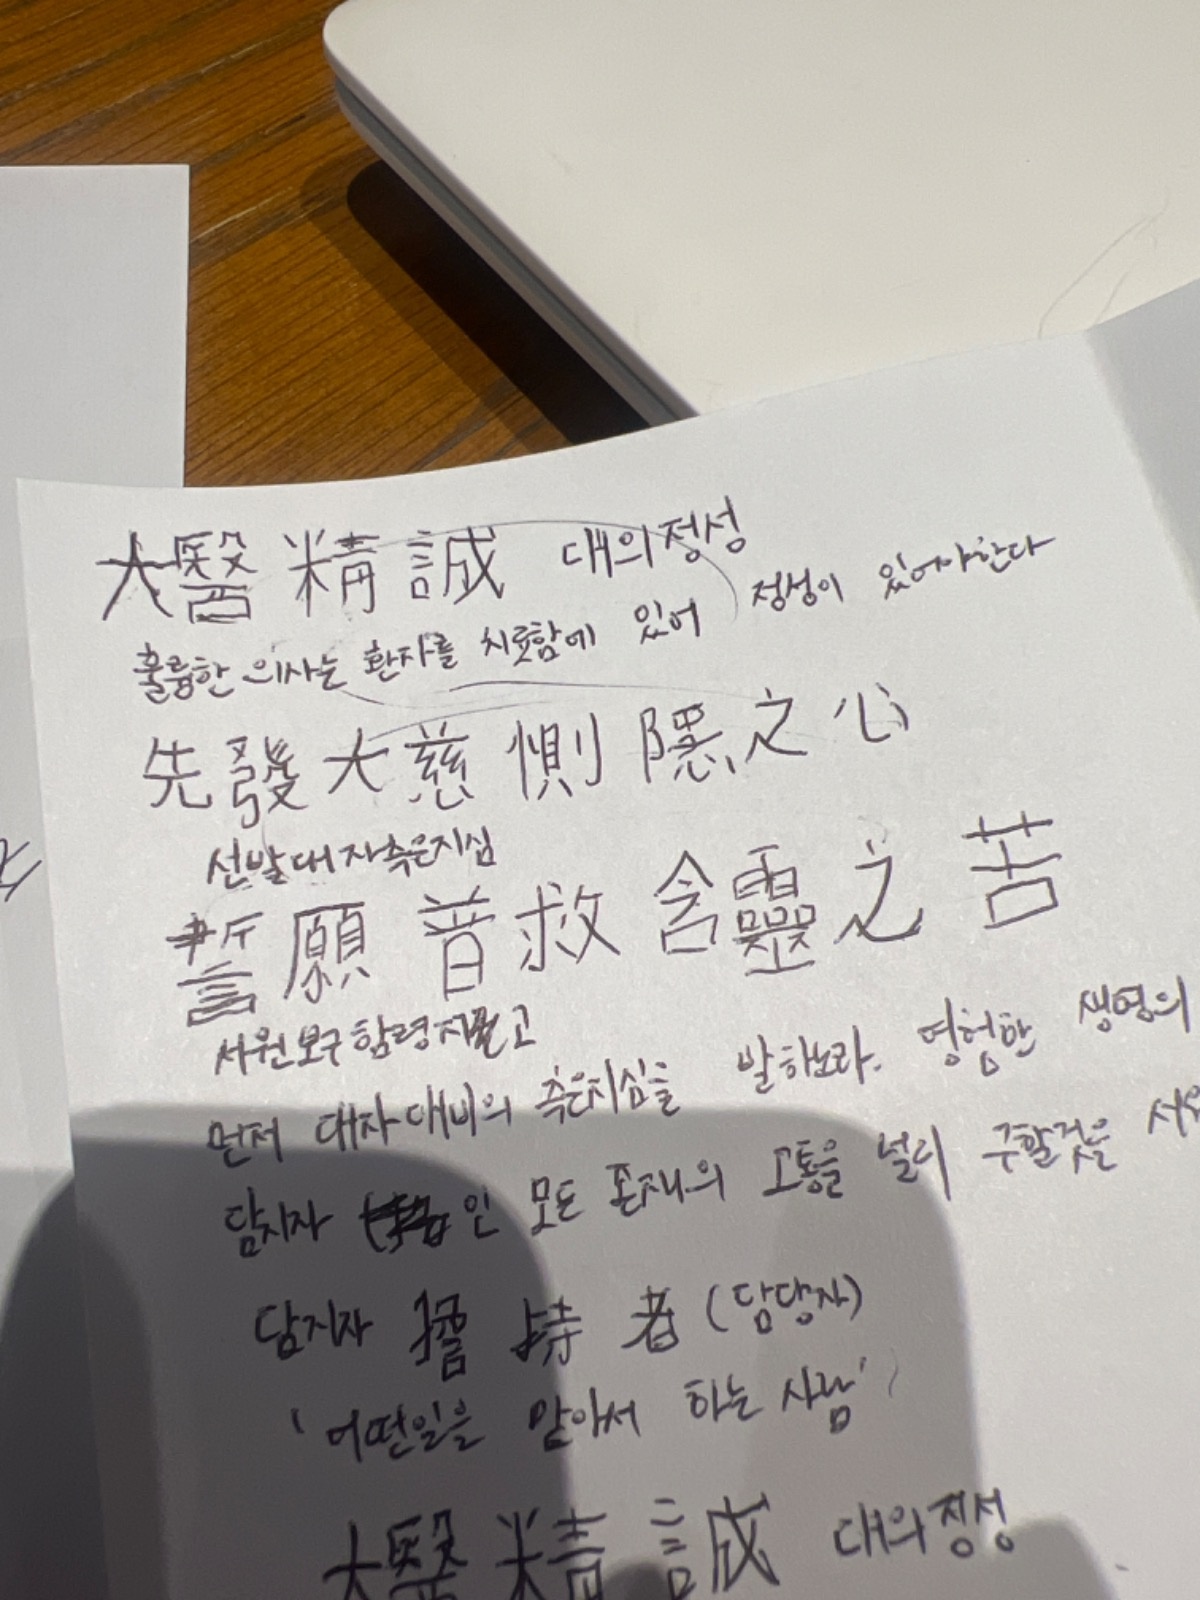 大醫精誠 대의정성
훌륭한 의사는 환자를 치료함에 있어 정성이 있어야한다
先發大慈惻隱之心
선발대자측은지심
誓願普救含靈之苦
서원보구함령지고
먼저 대자대비의 측은지심을 발하노라. 영험한 생명의
담지자 인 모든 존재의 고통을 널리 구할것을
담지자 擔持者 (담당자)
'어떤일을 맡아서 하는 사람'
大醫精誠 대의정성